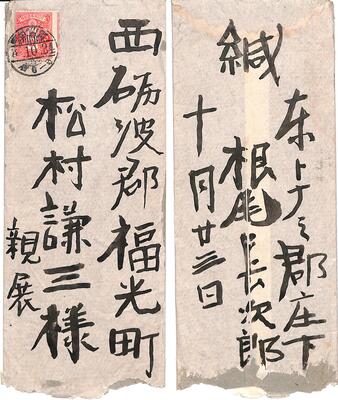 西礪波郡福光町
松村謙三様
親展
緘
东トナミ郡庄下
根尾長次郎
十月廿三日